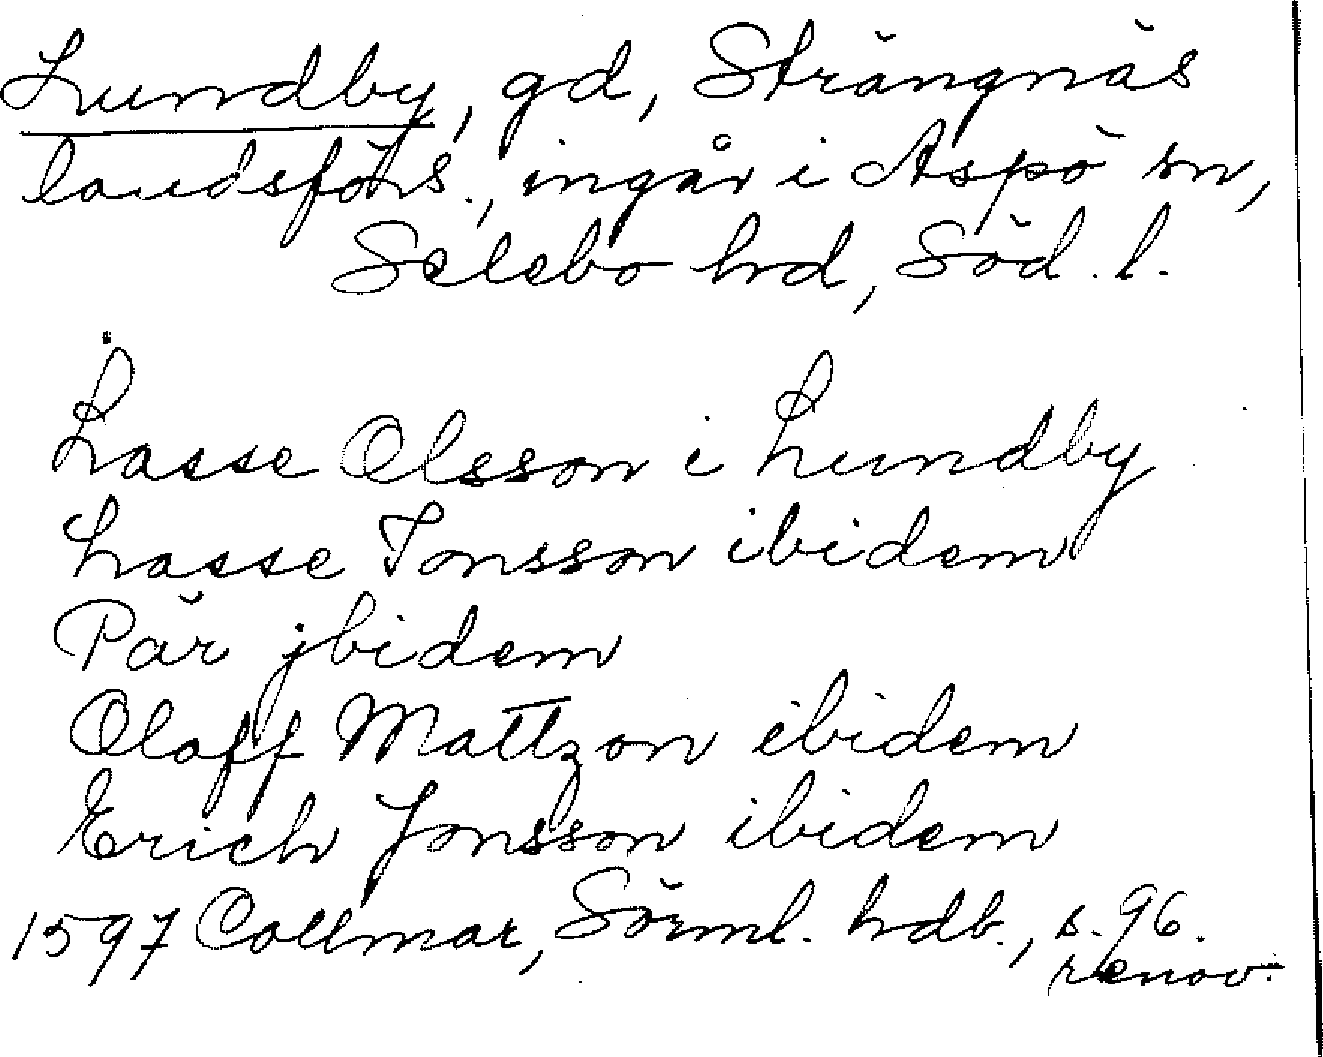 Lundby, gd, Strängnäs
landsförs., ingår i Aspö sn,
Selebo hd, Söd. l.
Lasse Olsson i Lundby
Lasse Jonsson ibidem
Pär jbidem
Olaff Mattzon ibidem
Erich Jonsson ibidem
1597 Collmar, Sörml. hdb., s. 96.
renov.